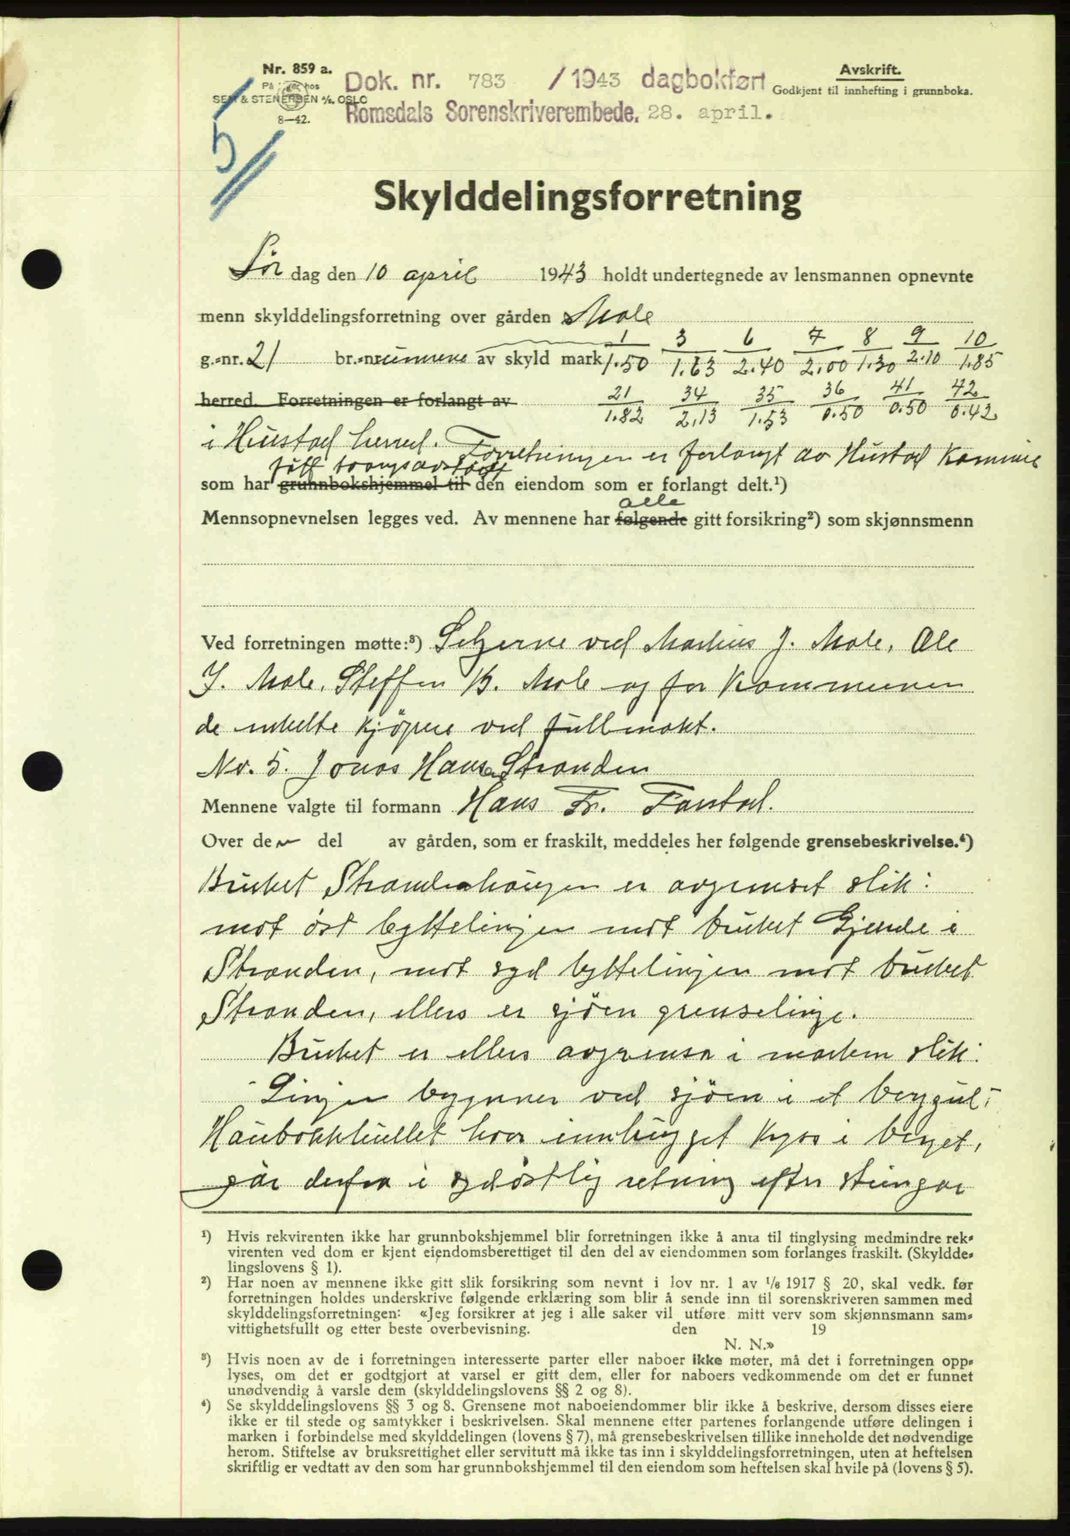 Nr. 859 a.
På hos
SEM & STENERSEN A/S, OSLO
8—42.
Dok. nr. 783 /1943 dagbokført
Romsdals Sorenskriverembede. 28. april.
Avskrift.
Godkjent til innhefting i grunnboka.
5
Skylddelingsforretning
Lør dag den 10 april 1943 holdt undertegnede av lensmannen opnevnte
menn skylddelingsforretning over gården Male
1 3 6 7 8 9 10
g.-nr. 21 br.-nrumrene av skyld mark 1.50 1.63 2.40 2.00 1.30 2.10 1.85
herred. Forretningen er forlangt av 21 34 35 36 41 42
1.82 2.13 1.53 0.50 0.50 0.42
i Hustad herred. Forretningen er forlangt av Hustad Kommune
fått tvangsavstått
som har grunnbokshjemmel til den eiendom som er forlangt delt.¹)
alle
Mennsopnevnelsen legges ved. Av mennene har følgende gitt forsikring²) som skjønnsmenn
Ved forretningen møtte:³) Selgerne ved Marius J. Male, Ole
J. Male, Steffen B. Male og for Kommunen
de enkelte kjøpere ved fullmakt.
Nr. 5. Jonas Hansen Stranden
Mennene valgte til formann Hans Fr. Farstad.
Over den del av gården, som er fraskilt, meddeles her følgende grensebeskrivelse.⁴)
Bruket Strandenhaugen er avgrenset slik:
mot øst byttelinjen mot bruket Gjerde i
Stranden, mot syd byttelinjen mot bruket
Stranden, ellers er sjøen grenselinje.
Bruket er ellers avgrensa i marken slik:
Linjen begynner ved sjøen i et
hvor innhugget kyss i berget,
går derfra i sydøstlig retning efter steingar
¹) Hvis rekvirenten ikke har grunnbokshjemmel blir forretningen ikke å anta til tinglysing medmindre rek-
virenten ved dom er kjent eiendomsberettiget til den del av eiendommen som forlanges fraskilt. (Skyldde-
lingslovens § 1).
²) Har noen av mennene ikke gitt slik forsikring som nevnt i lov nr. 1 av 1/6 1917 § 20, skal vedk. før
forretningen holdes underskrive følgende erklæring som blir å sende inn til sorenskriveren sammen med
skylddelingsforretningen: «Jeg forsikrer at jeg i alle saker vil utføre mitt verv som skjønnsmann sam-
vittighetsfullt og etter beste overbevisning. den 19
N. N.»
³) Hvis noen av de i forretningen interesserte parter eller naboer ikke møter, må det i forretningen opp-
lyses, om det er godtgjort at varsel er gitt dem, eller for naboers vedkommende om det er funnet
unødvendig å varsle dem (skylddelingslovens §§ 2 og 8).
⁴) Se skylddelingslovens §§ 3 og 8. Grensene mot naboeiendommer blir ikke å beskrive, dersom disses eiere
ikke er til stede og samtykker i beskrivelsen. Skal mennene etter partenes forlangende utføre delingen i
marken i forbindelse med skylddelingen (lovens § 7), må grensebeskrivelsen tillike inneholde det nødvendige
herom. Stiftelse av bruksrettighet eller servitutt må ikke tas inn i skylddelingsforretningen, uten at heftelsen
skriftlig er vedtatt av den som har grunnbokshjemmel til den eiendom som heftelsen skal hvile på (lovens § 5).